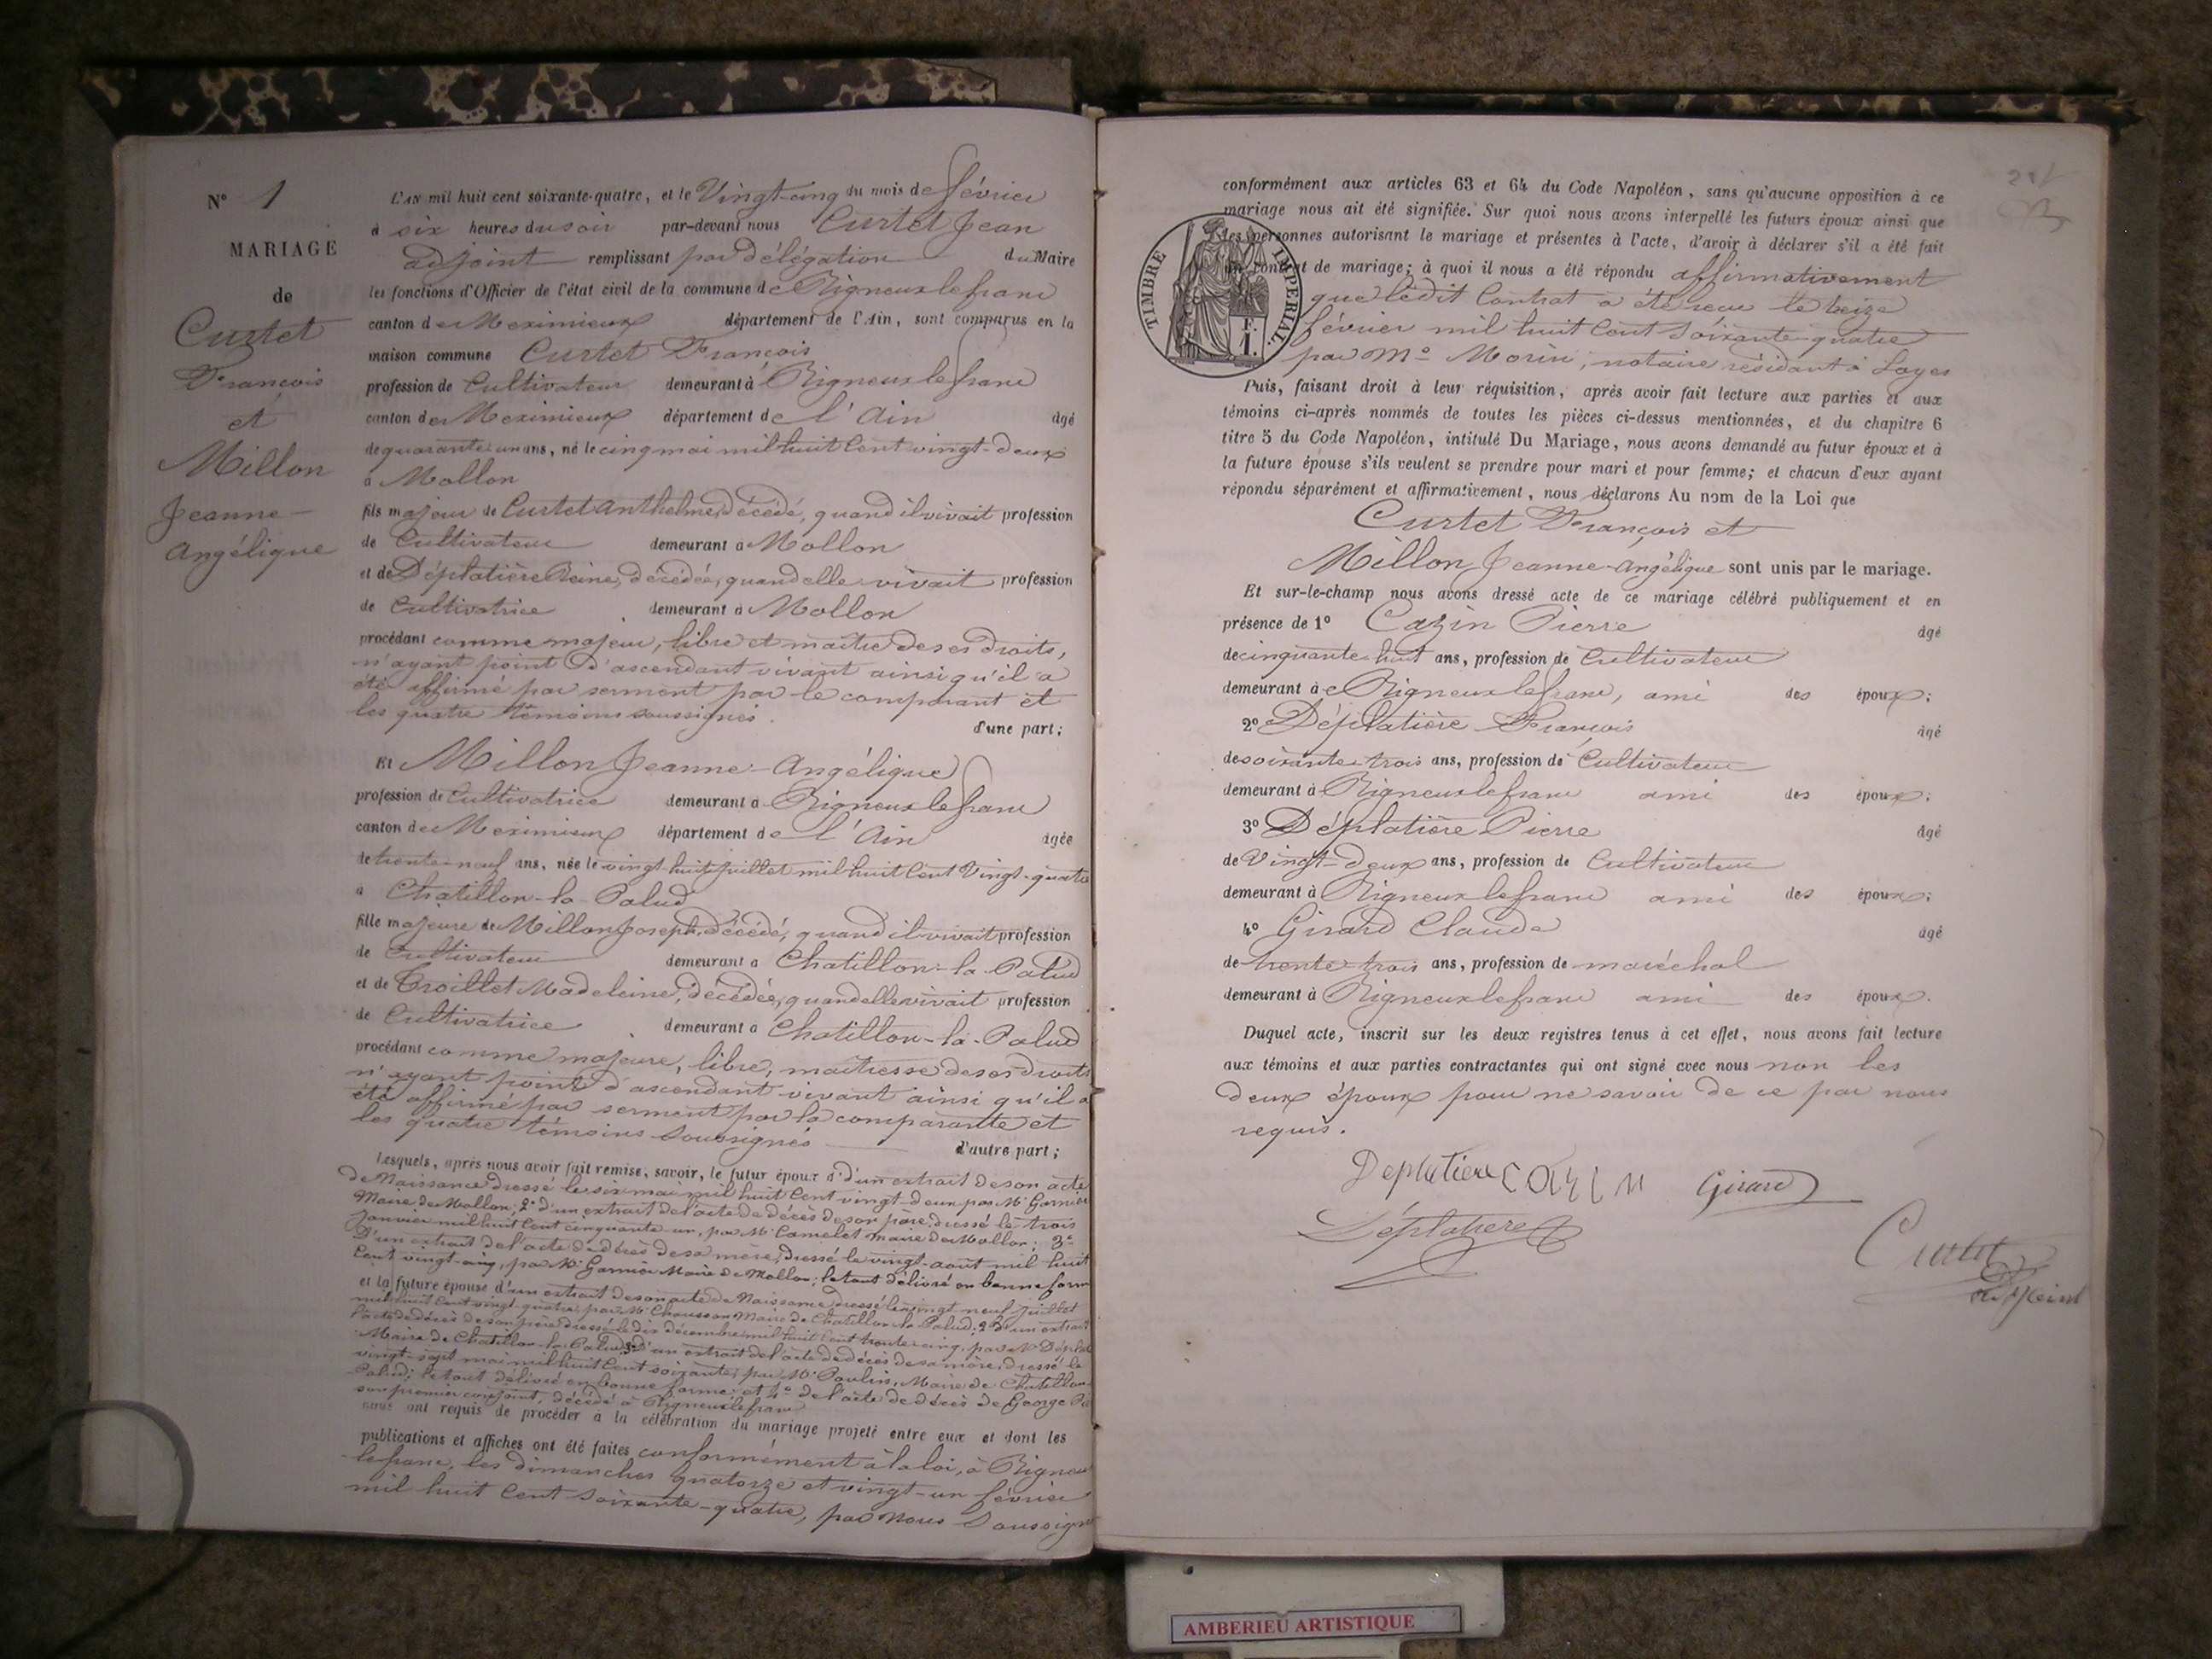 N° 1
MARIAGE
de
Curtet
François
et
Millon
Jeanne-
Angélique
L'AN mil huit cent soixante-quatre, et le Vingt-cinq du mois de février
à six heures du soir par-devant nous Curtet Jean
adjoint remplissant par délégation du Maire
les fonctions d'Officier de l'état civil de la commune de Rigneux le franc
canton de Meximieux département de l'Ain, sont comparus en la
maison commune Curtet François
profession de Cultivateur demeurant à Rigneux le franc
canton de Meximieux département de l'Ain âgé
de quarante un ans, né le cinq mai mil huit cent vingt-deux
à Mollon
fils majeur de Curtet Anthelme, décédé, quand il vivait profession
de Cultivateur demeurant à Mollon
et de Déplatière Reine, décédée, quand elle vivait profession
de Cultivatrice demeurant à Mollon
procédant comme majeur, libre et maître de ses droits,
n'ayant point d'ascendant vivant ainsi qu'il a
été affirmé par serment par le comparant et
les quatre témoins soussignés. d'une part;
Et Millon Jeanne-Angélique
profession de Cultivatrice demeurant à Rigneux le franc
canton de Meximieux département de l'Ain âgée
de trente-neuf ans, née le vingt-huit juillet mil huit cent vingt-quatre
à Chatillon-la-Palud
fille majeure de Millon Joseph, décédé, quand il vivait profession
de Cultivateur demeurant à Chatillon-la-Palud
et de Troillet Madeleine, décédée, quand elle vivait profession
de Cultivatrice demeurant à Chatillon-la-Palud
procédant comme majeure, libre, maîtresse de ses droits
n'ayant point d'ascendant vivant ainsi qu'il a
été affirmé par serment par la comparante et
les quatre témoins soussignés d'autre part;
Lesquels, après nous avoir fait remise, savoir, le futur époux 1° d'un extrait de son acte
de Naissance dressé le six mai mil huit cent vingt-deux par Mr Garnier
Maire de Mollon; 2° d'un extrait de l'acte de décès de son père, dressé le trois
Janvier mil huit cent cinquante un, par Mr Camelet maire de Mollon; 3°
D'un extrait de l'acte de décès de sa mère, dressé le vingt-août mil huit
cent vingt-cinq, par Mr Garnier Maire de Mollon; le tout délivré en bonne forme
et la future épouse d'un extrait de son acte de Naissance dressé le vingt-neuf juillet
mil huit cent vingt-quatre par Mr Chausson Maire de Chatillon la Palud; 2° d'un extrait
l'acte de décès de son père dressé le dix décembre mil huit cent trente-cinq, par Mr
Maire de Chatillon-la-Palud; 3° d'un extrait de l'acte de décès de sa mère, dressé le
vingt-sept mai mil huit cent soixante, par Mr Paulin, Maire de Chatillon-
Palud; le tout délivré en bonne forme et 4° de l'acte de décès de George
son premier conjoint, décédé à Rigneux le franc
nous ont requis de procéder à la célébration du mariage projeté entre eux et dont les
publications et affiches ont été faites conformément à la loi, à Rigneux
le franc, les dimanches quatorze et vingt-un février
mil huit cent soixante-quatre, par nous soussigné
conformément aux articles 63 et 64 du Code Napoléon, sans qu'aucune opposition à ce
mariage nous ait été signifiée. Sur quoi nous avons interpellé les futurs époux ainsi que
les personnes autorisant le mariage et présentes à l'acte, d'avoir à déclarer s'il a été fait
un contrat de mariage; à quoi il nous a été répondu affirmativement
que ledit Contrat a été reçu le treize
février mil huit cent soixante-quatre
par Me Morin, notaire résidant à Loyes
TIMBRE IMPERIAL.
F.
1.
Puis, faisant droit à leur réquisition, après avoir fait lecture aux parties et aux
témoins ci-après nommés de toutes les pièces ci-dessus mentionnées, et du chapitre 6
titre 5 du Code Napoléon, intitulé Du Mariage, nous avons demandé au futur époux et à
la future épouse s'ils veulent se prendre pour mari et pour femme; et chacun d'eux ayant
répondu séparément et affirmativement, nous déclarons Au nom de la Loi que
Curtet François et
Millon Jeanne-Angélique sont unis par le mariage.
Et sur-le-champ nous avons dressé acte de ce mariage célébré publiquement et en
présence de 1° Cazin Pierre âgé
de cinquante-huit ans, profession de Cultivateur
demeurant à Rigneux le franc, ami des époux;
2° Déplatière François âgé
de soixante-trois ans, profession de Cultivateur
demeurant à Rigneux le franc ami des époux;
3° Déplatière Pierre âgé
de Vingt-deux ans, profession de Cultivateur
demeurant à Rigneux le franc ami des époux;
4° Girard Claude âgé
de trente-trois ans, profession de maréchal
demeurant à Rigneux le franc ami des époux.
Duquel acte, inscrit sur les deux registres tenus à cet effet, nous avons fait lecture
aux témoins et aux parties contractantes qui ont signé avec nous non les
deux époux pour ne savoir de ce par nous
requis.
Deplatiere Cazin Girard
Déplatiere
Curtet
adjoint
AMBERIEU ARTISTIQUE